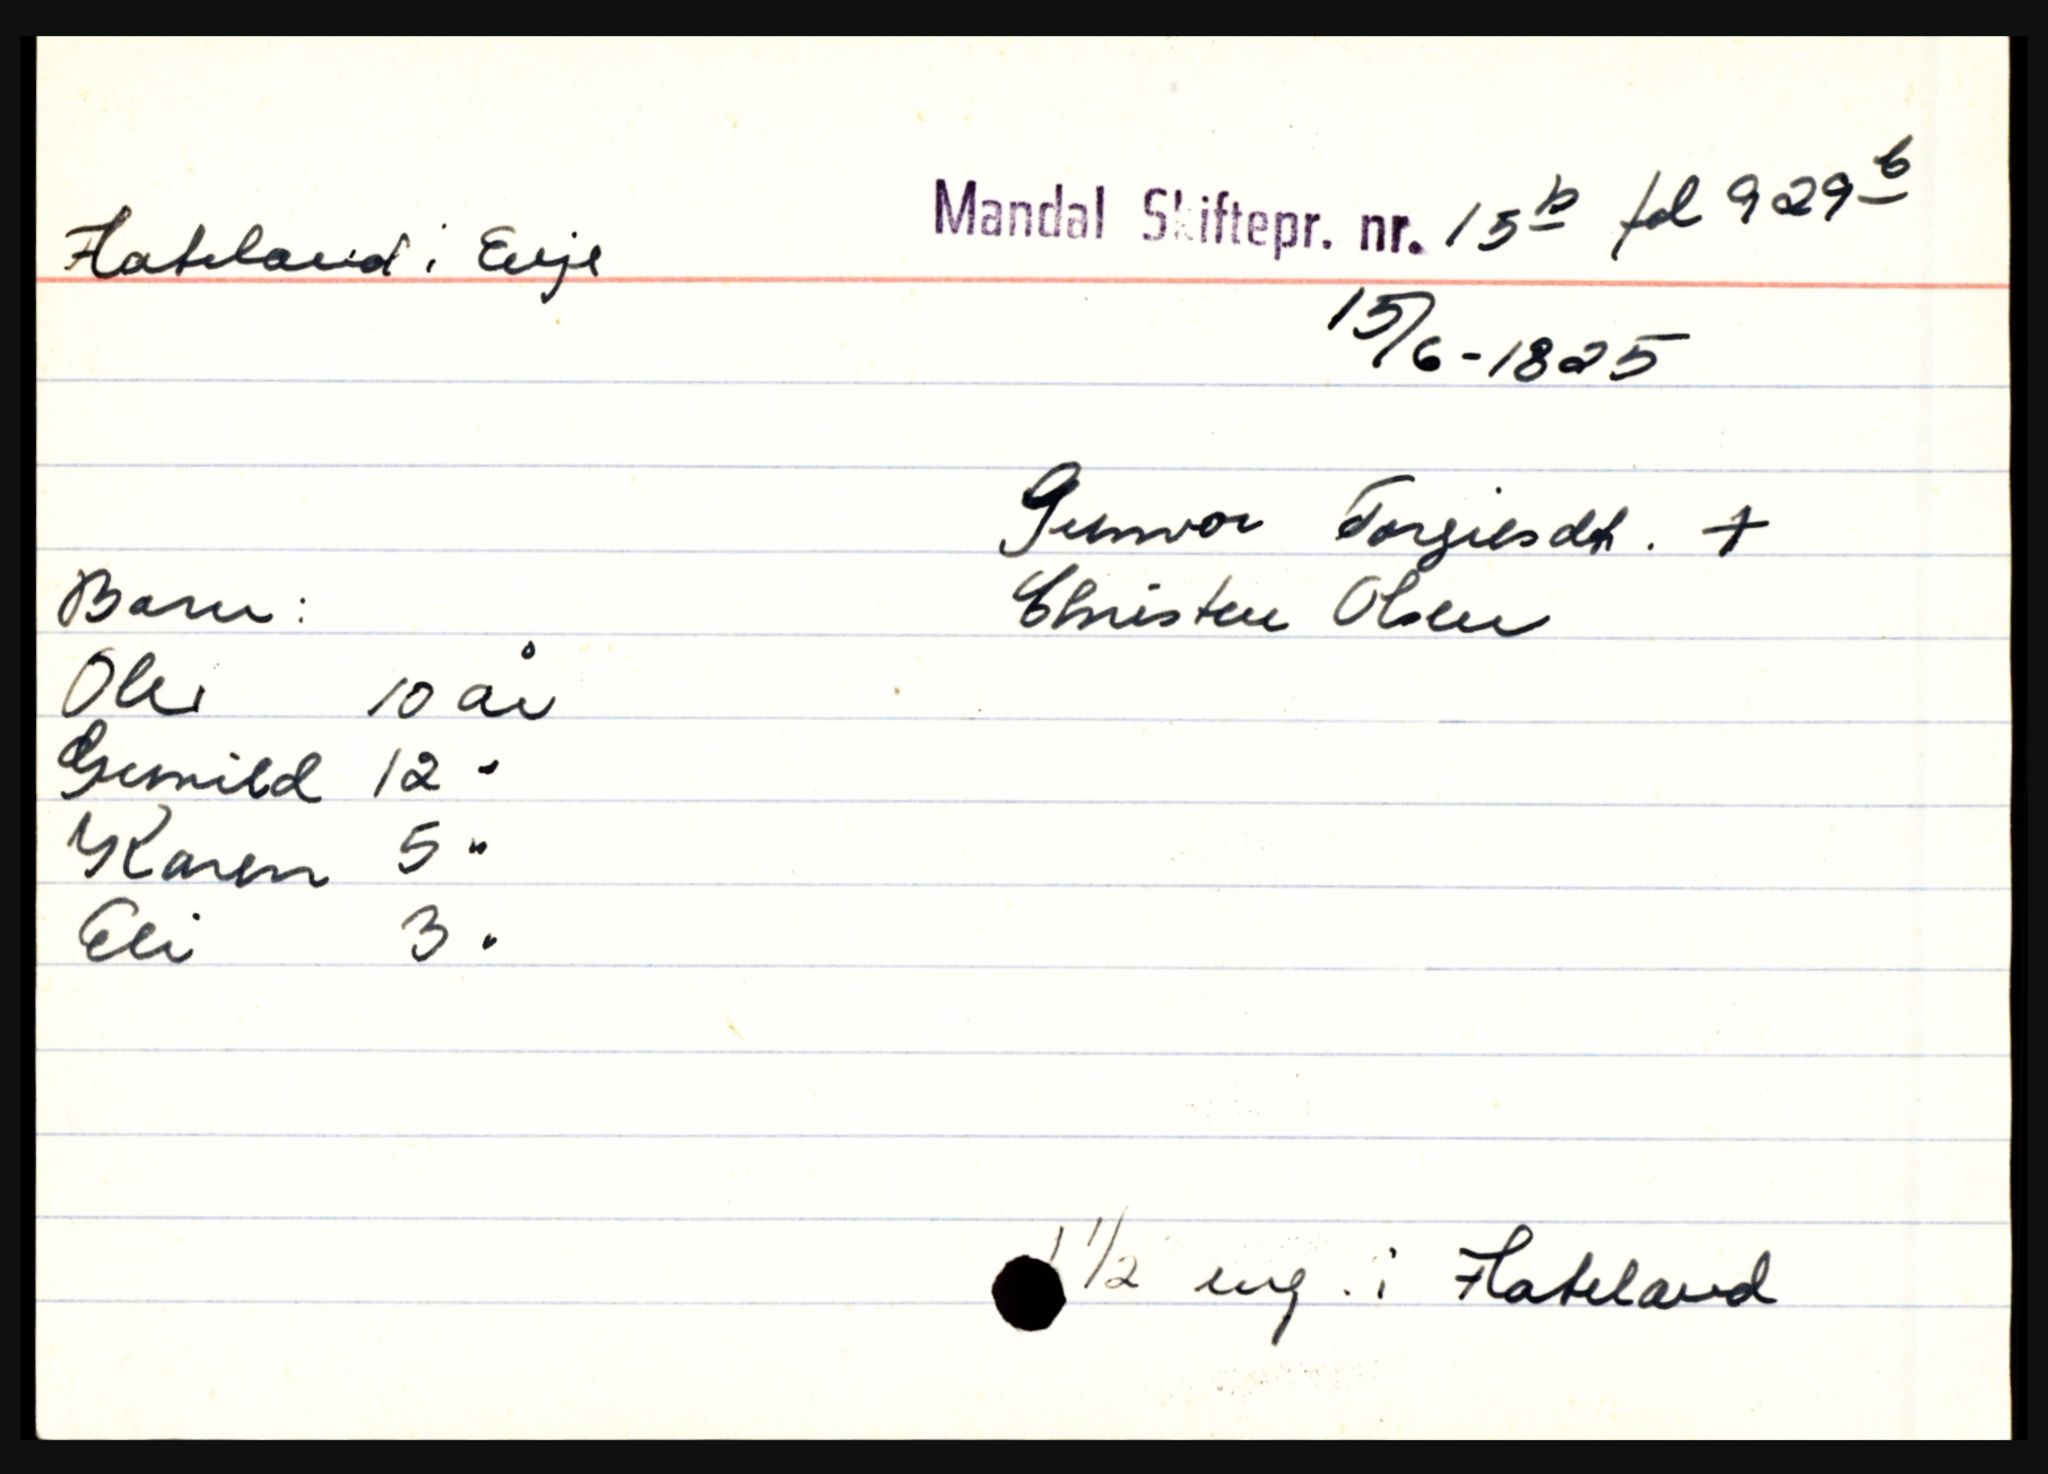 Mandal Skiftepr. nr. 15b fol 929b
Hateland i Evje
15/6-1825
Gunvor Torgiesdt. +
Christen Olsen
Barn:
Ole 10 år
Gunnild 12 "
Karen 5 "
Eli 3 "
1 1/2 eng. i Hateland